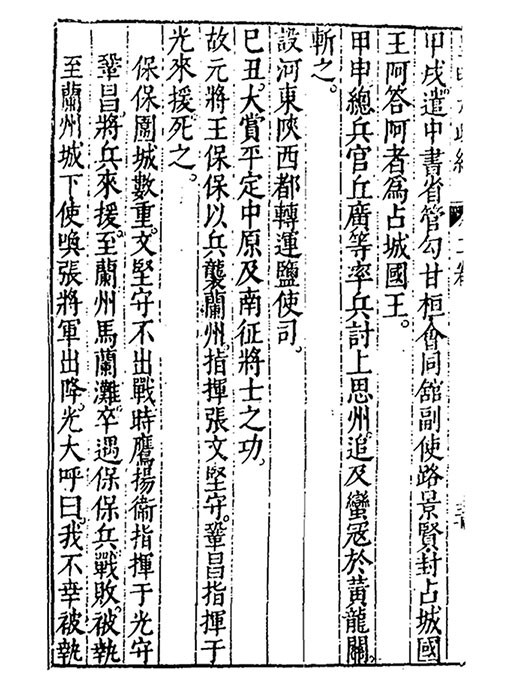 甲戌。遣中書省管勾甘桓會同館副使路景賢封占城國
王阿答阿者爲占城國王。
甲申總兵官丘廣等率兵討上思州。追及蠻寇於黃龍關。
斬之。
設河東陝西都轉運鹽使司。
己丑。大賞平定中原及南征將士之功。
故元將王保保以兵襲蘭州。指揮張文堅守。鞏昌指揮于
光來援。死之。
保保圍城數重。文堅守不出戰。時鷹揚衞指揮于光守
鞏昌。將兵來援。至蘭州馬蘭灘。卒遇保保兵戰敗。被執
至蘭州城下使喚張將軍出降。光大呼曰。我不幸被執